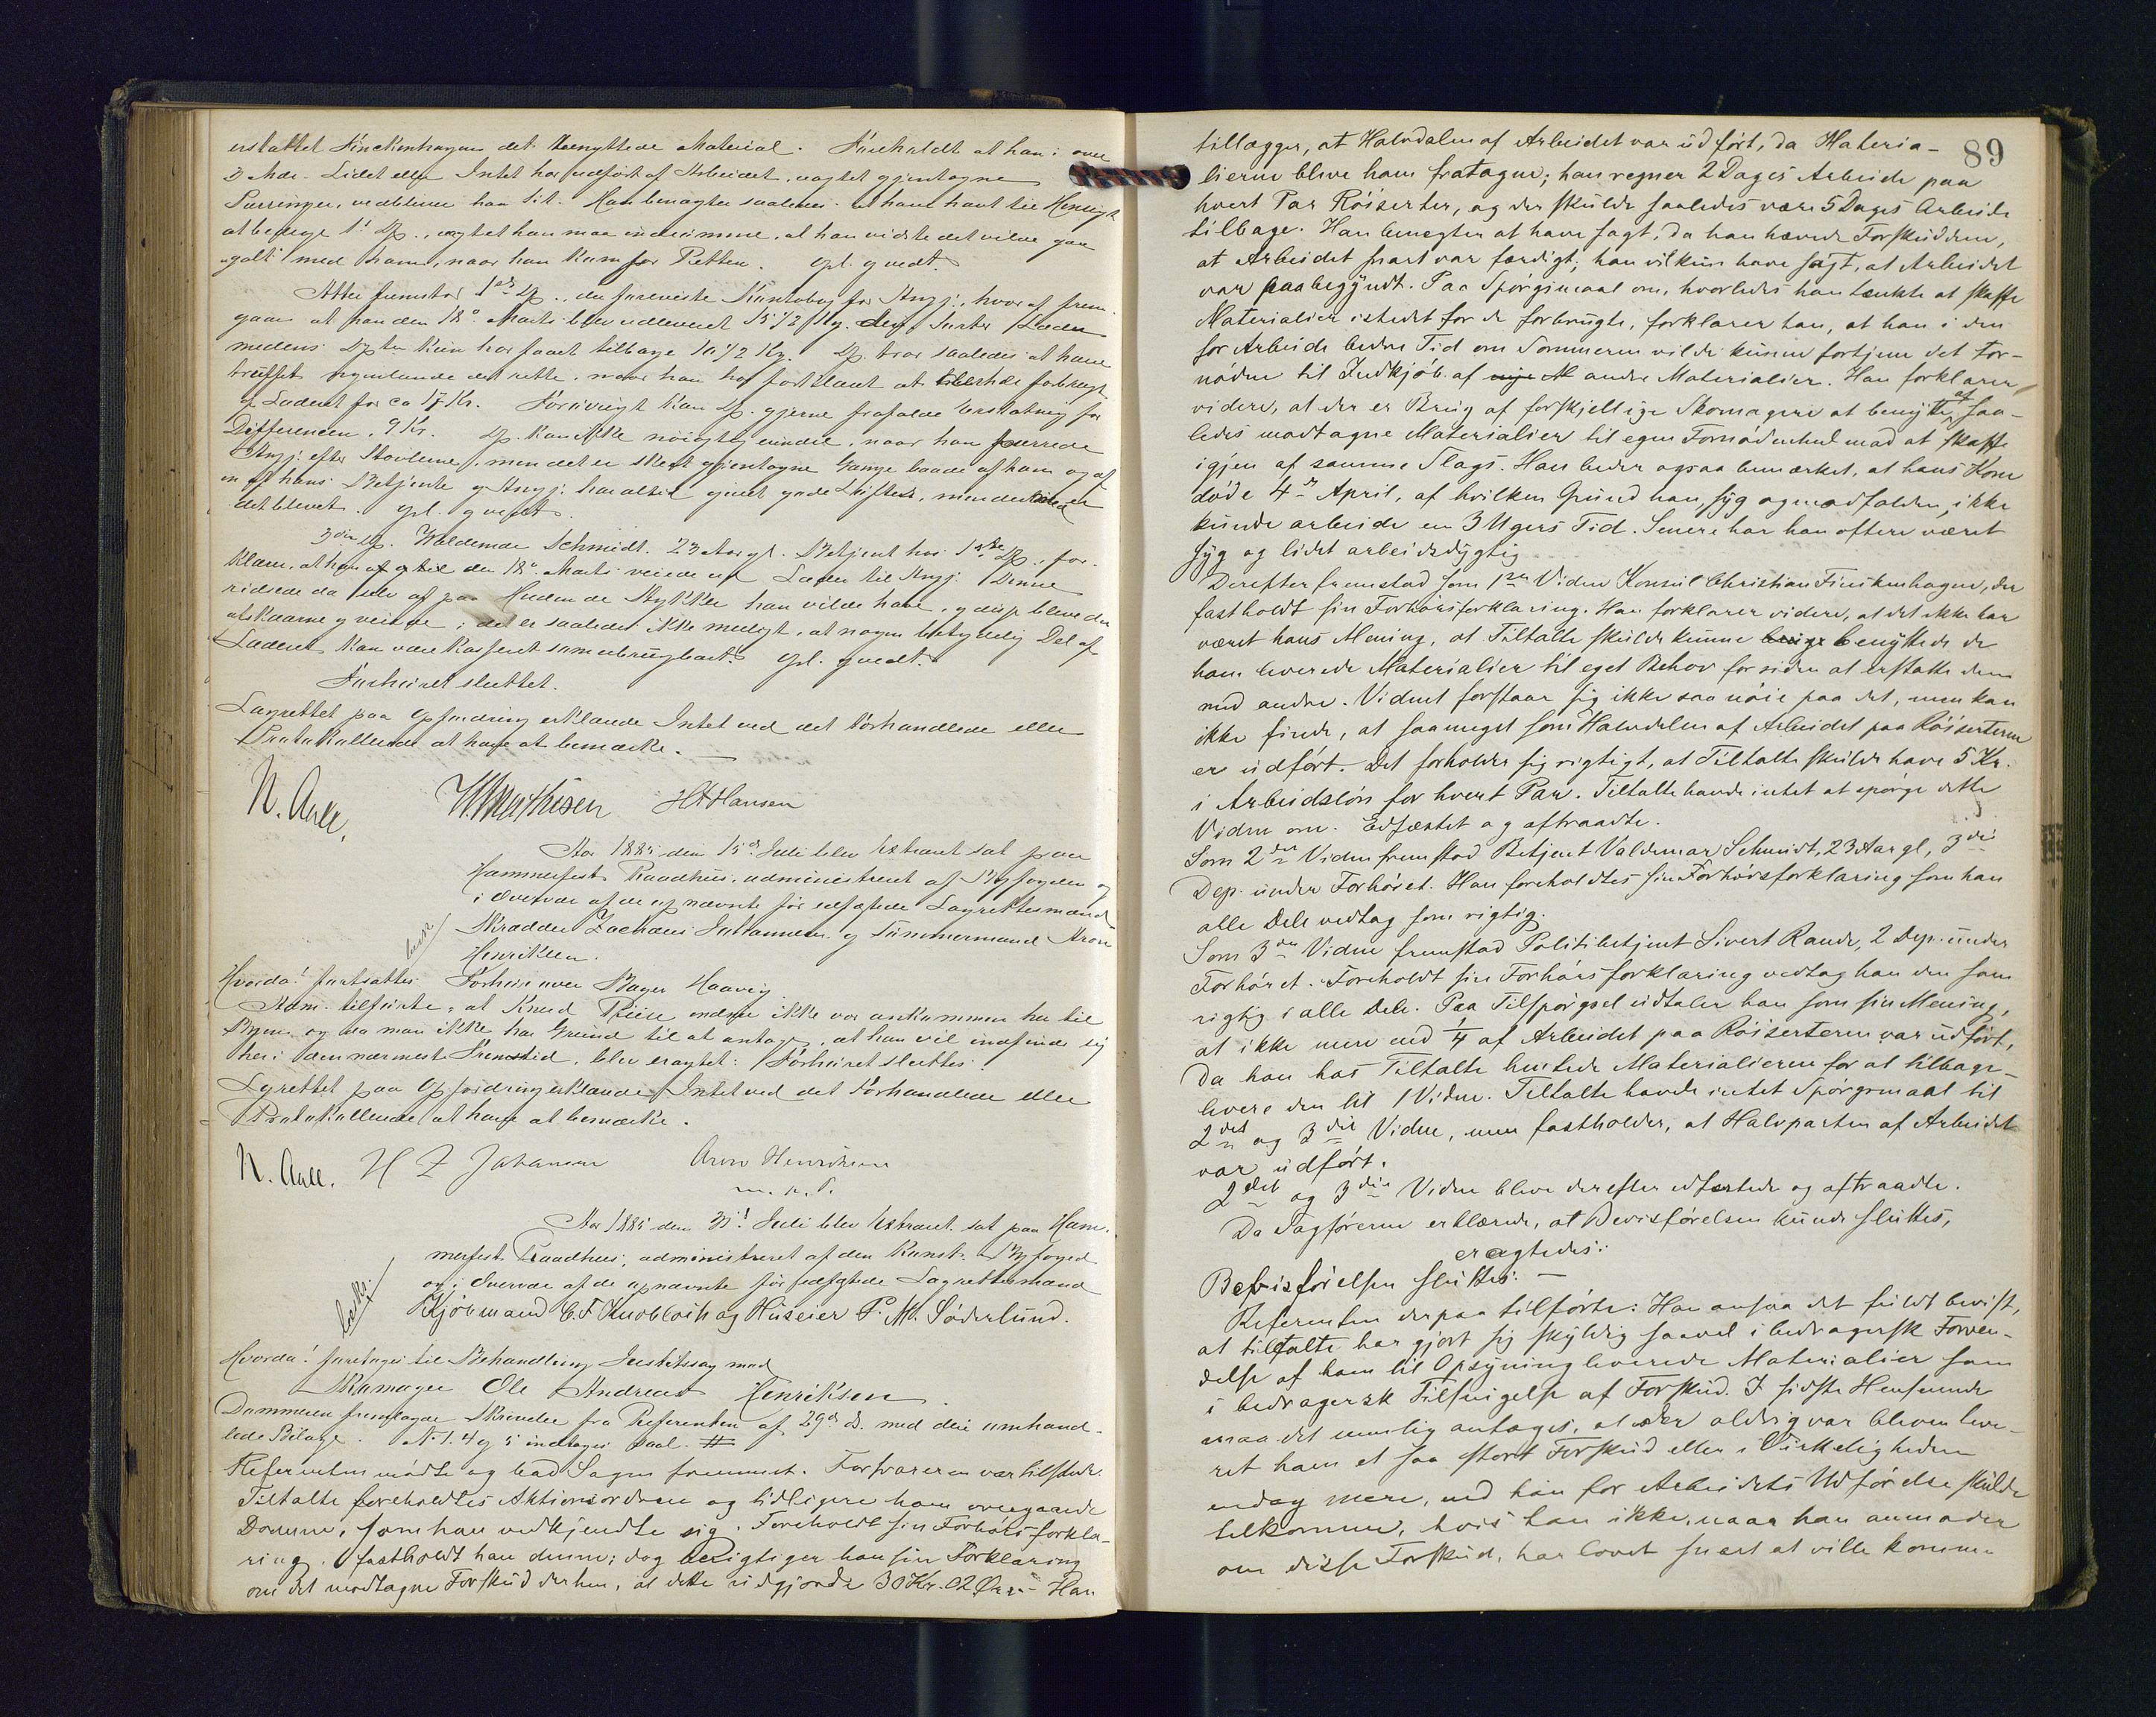 erstattet Finckenhagen det benyttede Material. Foreholdt at han i over
3 Mdr. Lidet eller Intet har udført af Arbeidet, uagtet gjentagne
Purringer, vedbliver han sit. Han benægter saaledes at have havt til Hensigt
at bedrage 1ste Dp., uagtet han maa indrømme, at han vidste det vilde gaa
galt med ham, naar han kom for Retten. Opl. og vedt.
Atter fremstod 1ste Dp., der foreviste Kontobog for Angj., hvoraf frem-
gaar at han den 18de Marts blev udleveret 15 1/2 Kg. Læder
medens Dpten kun har faaet tilbage 10 1/2 Kg. Dp. tror saaledes at have
truffet nogenlunde det rette, naar han har forklaret at forbrugt
af Læderet for ca 17 Kr. Forøvrigt kan Dp. gjerne frafalde Erstatning for
Differencen, 9 Kr. Dp. kan ikke nøiagtig erindre, naar han purrede
Angj. efter Støvlerne, men det er skeet gjentagne Gange baade af ham og af
en af hans Betjente og Angj. har altid givet gode Løfter, men derved er
det blevet. Opl. og vedt.
3die Dp. Waldemar Schmidt. 23 Aar gl. Betjent hos 1ste Dp., for-
klarer, at han den 18de Marts veiede ud Læder til Angj. Denne
ridsede da selv af paa Huden de Stykker han vilde have, og disse bleve da
afskaarne og veiede; det er saaledes ikke muligt, at nogen betydelig Del af
Læderet kan være kasseret som ubrugbart. Opl. og vedt.
Forhøret sluttet.
Lagrettet paa Opfordring erklærede Intet ved det Forhandlede eller
Protokollerede at have at bemærke.
N. Aall. W Mathisen H A Hansen
Aar 1885 den 15de Juli blev Extraret sat paa
Hammerfest Raadhus, administreret af Byfogden og
i Overvær af de opnævnte før edfæstede Lagrettesmænd
Skrædder Zacharias Johannesen og Tømmermand Aron
Henriksen.
Hvorda! fortsattes Forhør over Bager Haavig
Adm. tilførte, at Knud Reise endnu ikke var ankommen her til
Byen, og da man ikke har Grund til at antage, at han vil indfinde sig
her i den nærmeste Fremtid, blev eragtet: Forhøret sluttes.
Lagrettet paa Opfordring erklærede Intet ved det Forhandlede eller
Protokollerede at have at bemærke.
N. Aall. H Z Johansen Aron Henriksen
m. p. P.
Aar 1885 den 31te Juli blev Extraret sat paa Ham-
merfest Raadhus, administreret af den Konst. Byfoged
og i Overvær af de opnævnte før edfæstede Lagrettesmænd
Kjøbmand C. F. Knobloch og Huseier P. M. Söderlund.
Hvorda! foretages til Behandling Justitssag mod
Skomager Ole Andreas Henriksen.
Dommeren fremlagde Skrivelse fra Referenten af 29de ds. med deri omhand-
lede Bilage. No 1. 4 og 5 indtages saal. #
Referenten mødte og bad Sagen fremmet. Forsvareren var tilstede.
Tiltalte foreholdtes Aktionsordren og tidligere ham overgaaede
Domme, som han vedkjendte sig. Foreholdt sin Forhørsforkla-
ring, fastholdt han denne; dog berigtiger han sin Forklaring
om det modtagne Forskud derhen, at dette udgjorde 30 Kr. 02 Øre. – Han
89
tillægger, at Halvdelen af Arbeidet var udført, da Materia-
lierne bleve ham fratagne; han regner 2 Dages Arbeide paa
hvert Par Röiserter, og der skulde saaledes være 5 Dages Arbeide
tilbage. Han benegter at have sagt, da han hævede Forskuddene,
at Arbeidet snart var færdigt; han vil kun have sagt, at Arbeidet
var paabegyndt. Paa Spörgsmaal om, hvorledes han tænkte at skaffe
Materialier istedet for de forbrugte, forklarer han, at han i den
for Arbeide bedre Tid om Sommeren vilde kunne fortjene det for-
nødne til Indkjøb af andre Materialier. Han forklarer
videre, at der er Brug af forskjellige Skomagere at benytte af saa-
ledes modtagne Materialier til egen Fornødenhed mod at skaffe
igjen af samme Slags. Han beder ogsaa bemærket, at hans Kone
døde 4de April, af hvilken Grund han, syg og modfalden, ikke
kunde arbeide en 3 Ugers Tid. Senere har han oftere været
syg og lidet arbeidsdygtig.
Derefter fremstod som 1ste Vidne Konsul Christian Finckenhagen, der
fastholdt sin Forhørsforklaring. Han forklarer videre, at det ikke har
været hans Mening, at Tiltalte skulde kunne benyttede de
ham leverede Materialier til eget Behov for siden at erstatte dem
med andre. Vidnet forstaar sig ikke saa nöie paa det, men kan
ikke finde, at saameget som Halvdelen af Arbeidet paa Röiserterne
er udført. Det forholder sig rigtigt, at Tiltalte skulde have 5 Kr.
i Arbeidslön for hvert Par. Tiltalte havde intet at spörge dette
Vidne om. Edfæstet og aftraadte.
Som 2det Vidne fremstod Betjent Valdemar Schmidt, 23 Aar gl, 3die
Dep. under Forhöret. Han foreholdtes sin Forhørsforklaring som han
alle Dele vedtog som rigtig.
Som 3die Vidne fremstod Politibetjent Sivert Rande, 2 Dep. under
Forhöret. Foreholdt sin Forhörsforklaring vedtog han den som
rigtig i alle Dele. Paa Tilspörgsel udtaler han som sin Mening,
at ikke mere end 1/4 af Arbeidet paa Röiserterne var udfört,
da han hos Tiltalte hentede Materialierne for at tilbage-
levere dem til 1 Vidne. Tiltalte havde intet Spörgsmaal til
2det og 3die Vidne, men fastholder, at Halvparten af Arbeidet
var udfört.
2det og 3die Vidne bleve derefter edfæstede og aftraadte.
Da Sagförerne erklærede, at Bevisförelsen kunde sluttes,
eragtedes:
Bevisförelsen sluttes. —
Referenten derpaa tilförte: Han ansaa det fuldt bevist,
at tiltalte har gjort sig skyldig saavel i bedragersk Forven-
delse af ham til Opsyning leverede Materialier som
i bedragersk Tilsnigelse af Forskud. I sidste Henseende
maa det nemlig antages, at der aldrig var bleven leve-
ret ham et saa stort Forskud eller i Virkeligheden
endog mere, end han for Arbeidets Udförelse skulde
tilkomme, hvis han ikke, naar han anmodede
om disse Forskud, har lovet snart at ville komme